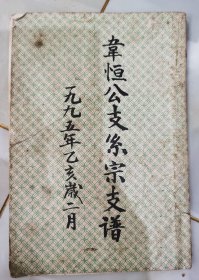 韋恒公支系宗支谱
一九九五年乙亥歲二月